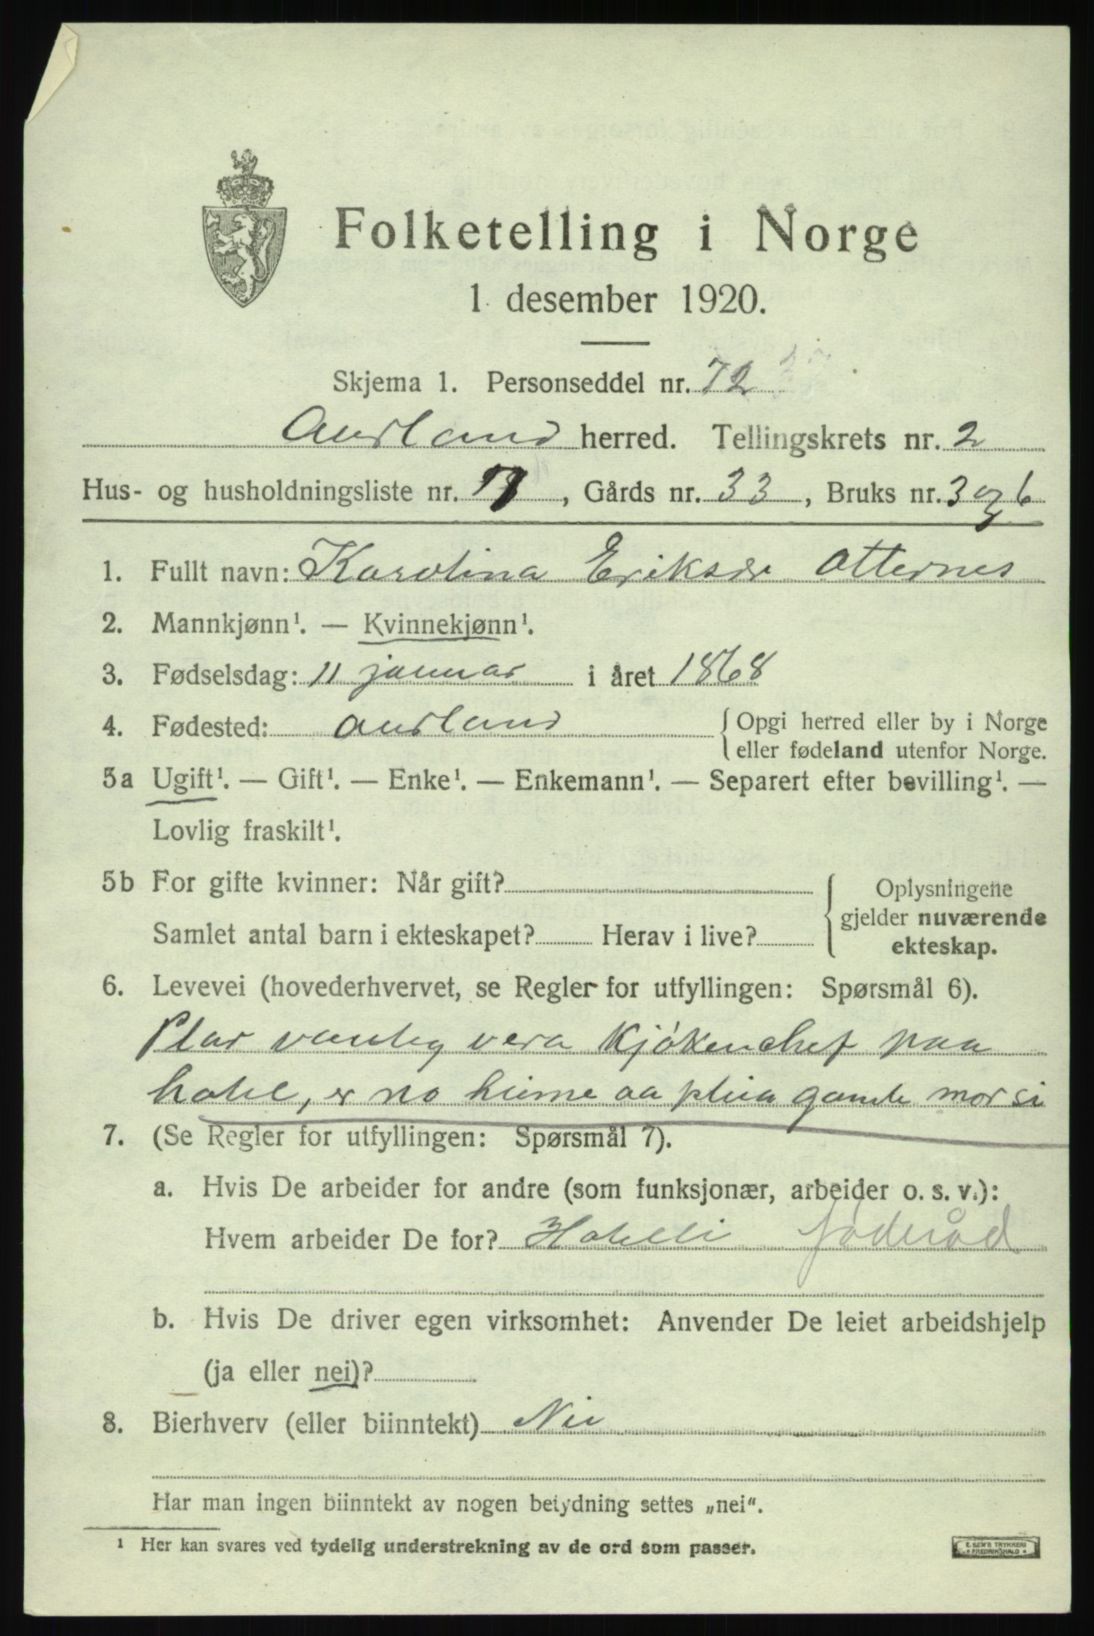 Folketelling i Norge
1 desember 1920.
Skjema 1. Personseddel nr. 72
Aurland herred. Tellingskrets nr. 2
Hus- og husholdningsliste nr. , Gårds nr. 33, Bruks nr. 3 og 6
1. Fullt navn: Karolina Eriksdr Otternes
2. Mannkjønn¹. — Kvinnekjønn¹.
3. Fødselsdag: 11 januar i året 1868
4. Fødested: Aurland {Opgi herred eller by i Norge
eller fødeland utenfor Norge.
5a Ugift¹. — Gift¹. — Enke¹. — Enkemann¹. — Separert efter bevilling¹. —
Lovlig fraskilt¹.
5b For gifte kvinner: Når gift?
Samlet antal barn i ekteskapet? Herav i live?
{Oplysningene
gjelder nuværende
ekteskap.
6. Levevei (hovederhvervet, se Regler for utfyllingen: Spørsmål 6).
Plar vanleg vera kjøkenchef paa
hotel, er no heime aa pleia gamle mor si
7. (Se Regler for utfyllingen: Spørsmål 7).
a. Hvis De arbeider for andre (som funksjonær, arbeider o. s. v.):
Hvem arbeider De for? Hotelli føderåd
b. Hvis De driver egen virksomhet: Anvender De leiet arbeidshjelp
(ja eller nei)?
8. Bierhverv (eller biinntekt) Nei
Har man ingen biinntekt av nogen betydning settes „nei".
¹ Her kan svares ved tydelig understrekning av de ord som passer.
E. SEM'S TRYKKERI
FREDRIKSHALD